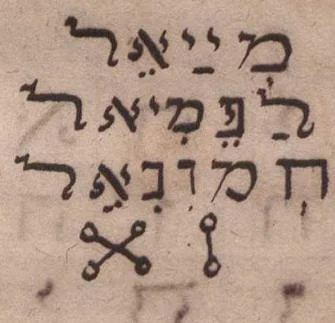 מיַיאֵל
לַפֶּמִיאל
חִמוִנִאֵל